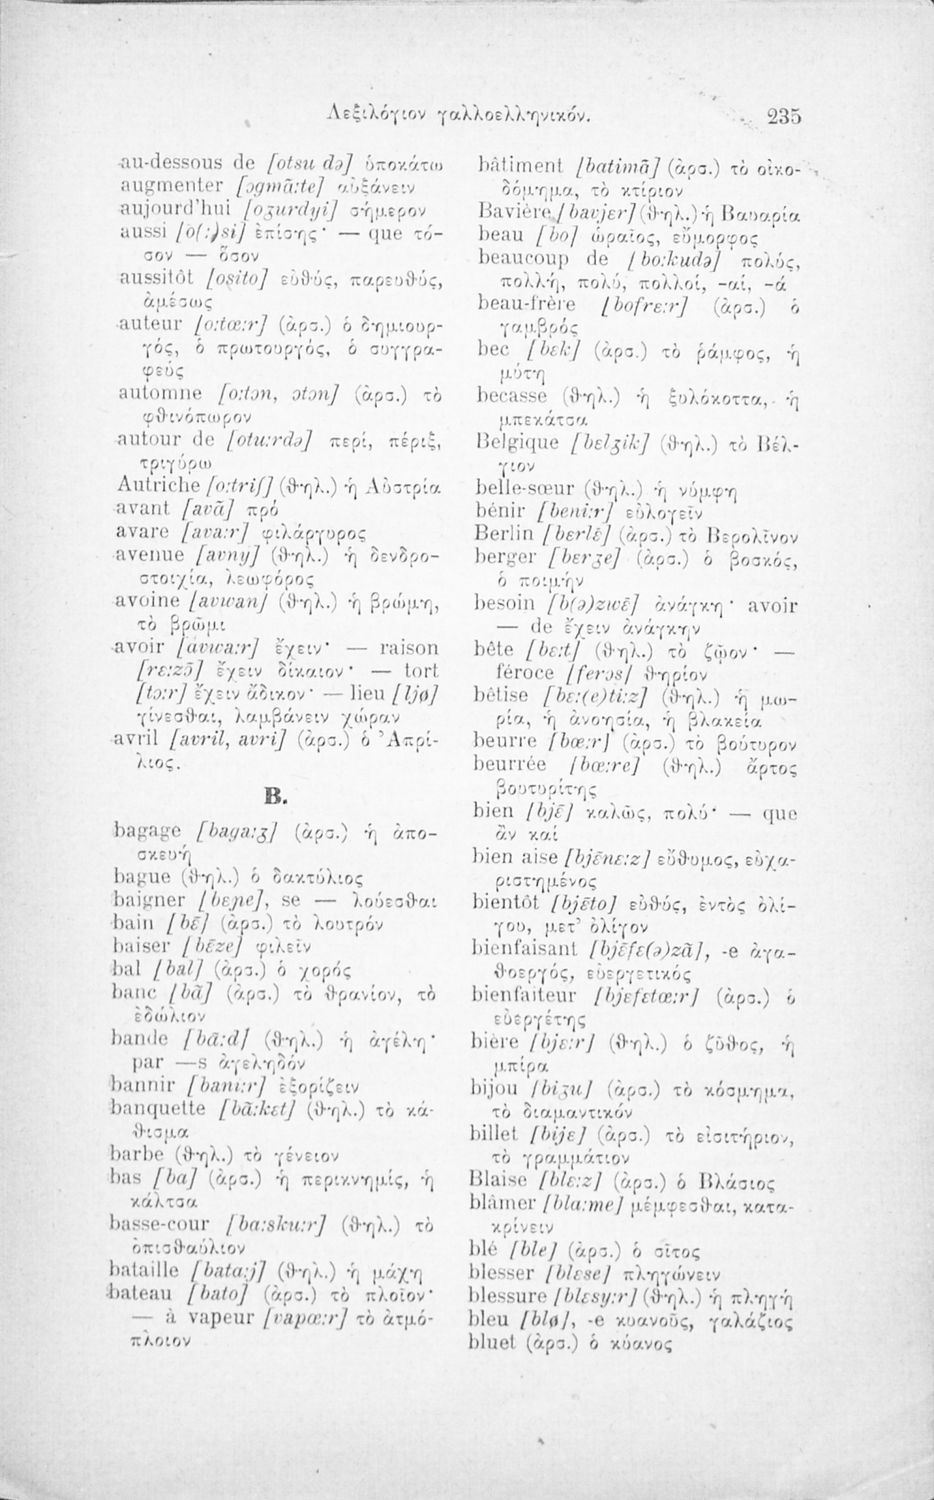 Λεξιλόγιον γαλλοελληνικόν. 235
au-dessous de [otsu də] ὑποκάτω
augmenter [ɔgmɑ̃:te] αὐξάνειν
aujourd'hui [oʒurdɥi] σήμερον
aussi [o(:)si] ἐπίσης· — que τό-
σον — ὅσον
aussitôt [osito] εὐθύς, παρευθύς,
ἀμέσως
auteur [o:tœ:r] (ἀρσ.) ὁ δημιουρ-
γός, ὁ πρωτουργός, ὁ συγγρα-
φεύς
automne [o:tɔn, ɔtɔn] (ἀρσ.) τὸ
φθινόπωρον
autour de [otu:rdə] περί, πέριξ,
τριγύρω
Autriche [o:triʃ] (θηλ.) ἡ Αὐστρία
avant [avɑ̃] πρό
avare [ava:r] φιλάργυρος
avenue [avny] (θηλ.) ἡ δενδρο-
στοιχία, λεωφόρος
avoine [avwan] (θηλ.) ἡ βρώμη,
τὸ βρῶμι
avoir [avwa:r] ἔχειν· — raison
[rɛ:zɔ̃] ἔχειν δίκαιον· — tort
[tɔ:r] ἔχειν ἄδικον· — lieu [ljø]
γίνεσθαι, λαμβάνειν χώραν
avril [avril, avri] (ἀρσ.) ὁ Ἀπρί-
λιος.
B.
bagage [baga:ʒ] (ἀρσ.) ἡ ἀπο-
σκευή
bague (θηλ.) ὁ δακτύλιος
baigner [bɛɲe], se — λούεσθαι
bain [bɛ̃] (ἀρσ.) τὸ λουτρόν
baiser [bɛze] φιλεῖν
bal [bal] (ἀρσ.) ὁ χορός
banc [bɑ̃] (ἀρσ.) τὸ θρανίον, τὸ
ἑδώλιον
bande [bɑ̃:d] (θηλ.) ἡ ἀγέλη·
par —s ἀγεληδόν
bannir [bani:r] ἐξορίζειν
banquette [bɑ̃:kɛt] (θηλ.) τὸ κά-
θισμα
barbe (θηλ.) τὸ γένειον
bas [ba] (ἀρσ.) ἡ περικνημίς, ἡ
κάλτσα
basse-cour [ba:sku:r] (θηλ.) τὸ
ὀπισθαύλιον
bataille [bata:j] (θηλ.) ἡ μάχη
bateau [bato] (ἀρσ.) τὸ πλοῖον·
— à vapeur [vapœ:r] τὸ ἀτμό-
πλοιον
bâtiment [batimɑ̃] (ἀρσ.) τὸ οἰκο-
δόμημα, τὸ κτίριον
Bavière [bavjɛr] (θηλ.) ἡ Βαυαρία
beau [bo] ὡραῖος, εὔμορφος
beaucoup de [bo:kudə] πολύς,
πολλή, πολύ, πολλοί, -αί, -ά
beau-frère [bofrɛ:r] (ἀρσ.) ὁ
γαμβρός
bec [bɛk] (ἀρσ.) τὸ ῥάμφος, ἡ
μύτη
becasse (θηλ.) ἡ ξυλόκοττα, ἡ
μπεκάτσα
Belgique [bɛlʒik] (θηλ.) τὸ Βέλ-
γιον
belle-sœur (θηλ.) ἡ νύμφη
bénir [beni:r] εὐλογεῖν
Berlin [bɛrlɛ̃] (ἀρσ.) τὸ Βερολῖνον
berger [bɛrʒe] (ἀρσ.) ὁ βοσκός,
ὁ ποιμήν
besoin [b(ə)zwɛ̃] ἀνάγκη· avoir
— de ἔχειν ἀνάγκην
bête [bɛ:t] (θηλ.) τὸ ζῷον· —
féroce [ferɔs] θηρίον
bêtise [bɛ:(e)ti:z] (θηλ.) ἡ μω-
ρία, ἡ ἀνοησία, ἡ βλακεία
beurre [bœ:r] (ἀρσ.) τὸ βούτυρον
beurrée [bœ:re] (θηλ.) ἄρτος
βουτυρίτης
bien [bjɛ̃] καλῶς, πολύ· — que
ἂν καί
bien aise [bjɛ̃nɛ:z] εὔθυμος, εὐχα-
ριστημένος
bientôt [bjɛ̃to] εὐθύς, ἐντὸς ὀλί-
γου, μετ' ὀλίγον
bienfaisant [bjɛ̃fɛ(ə)zɑ̃], -e ἀγα-
θοεργός, εὐεργετικός
bienfaiteur [bjɛfɛtœ:r] (ἀρσ.) ὁ
εὐεργέτης
bière [bjɛ:r] (θηλ.) ὁ ζῦθος, ἡ
μπίρα
bijou [biʒu] (ἀρσ.) τὸ κόσμημα,
τὸ διαμαντικόν
billet [bijɛ] (ἀρσ.) τὸ εἰσιτήριον,
τὸ γραμμάτιον
Blaise [blɛ:z] (ἀρσ.) ὁ Βλάσιος
blâmer [bla:me] μέμφεσθαι, κατα-
κρίνειν
blé [ble] (ἀρσ.) ὁ σῖτος
blesser [blɛse] πληγώνειν
blessure [blɛsy:r] (θηλ.) ἡ πληγή
bleu [blø], -e κυανοῦς, γαλάζιος
bluet (ἀρσ.) ὁ κύανος